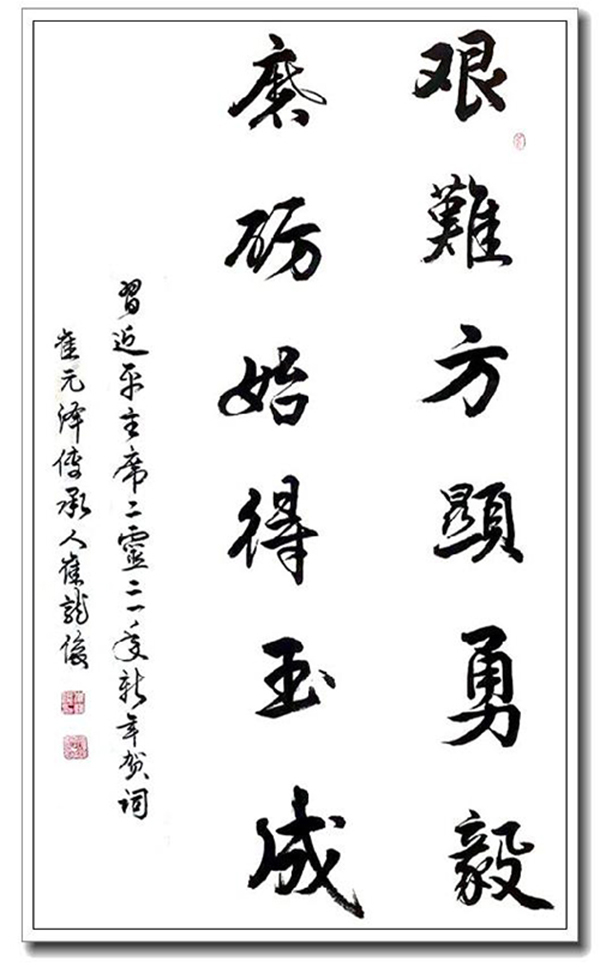 艰難方顯勇毅
磨砺始得玉成
習近平主席二靈二一年新年贺词
崔元泽傳承人崔龍俊